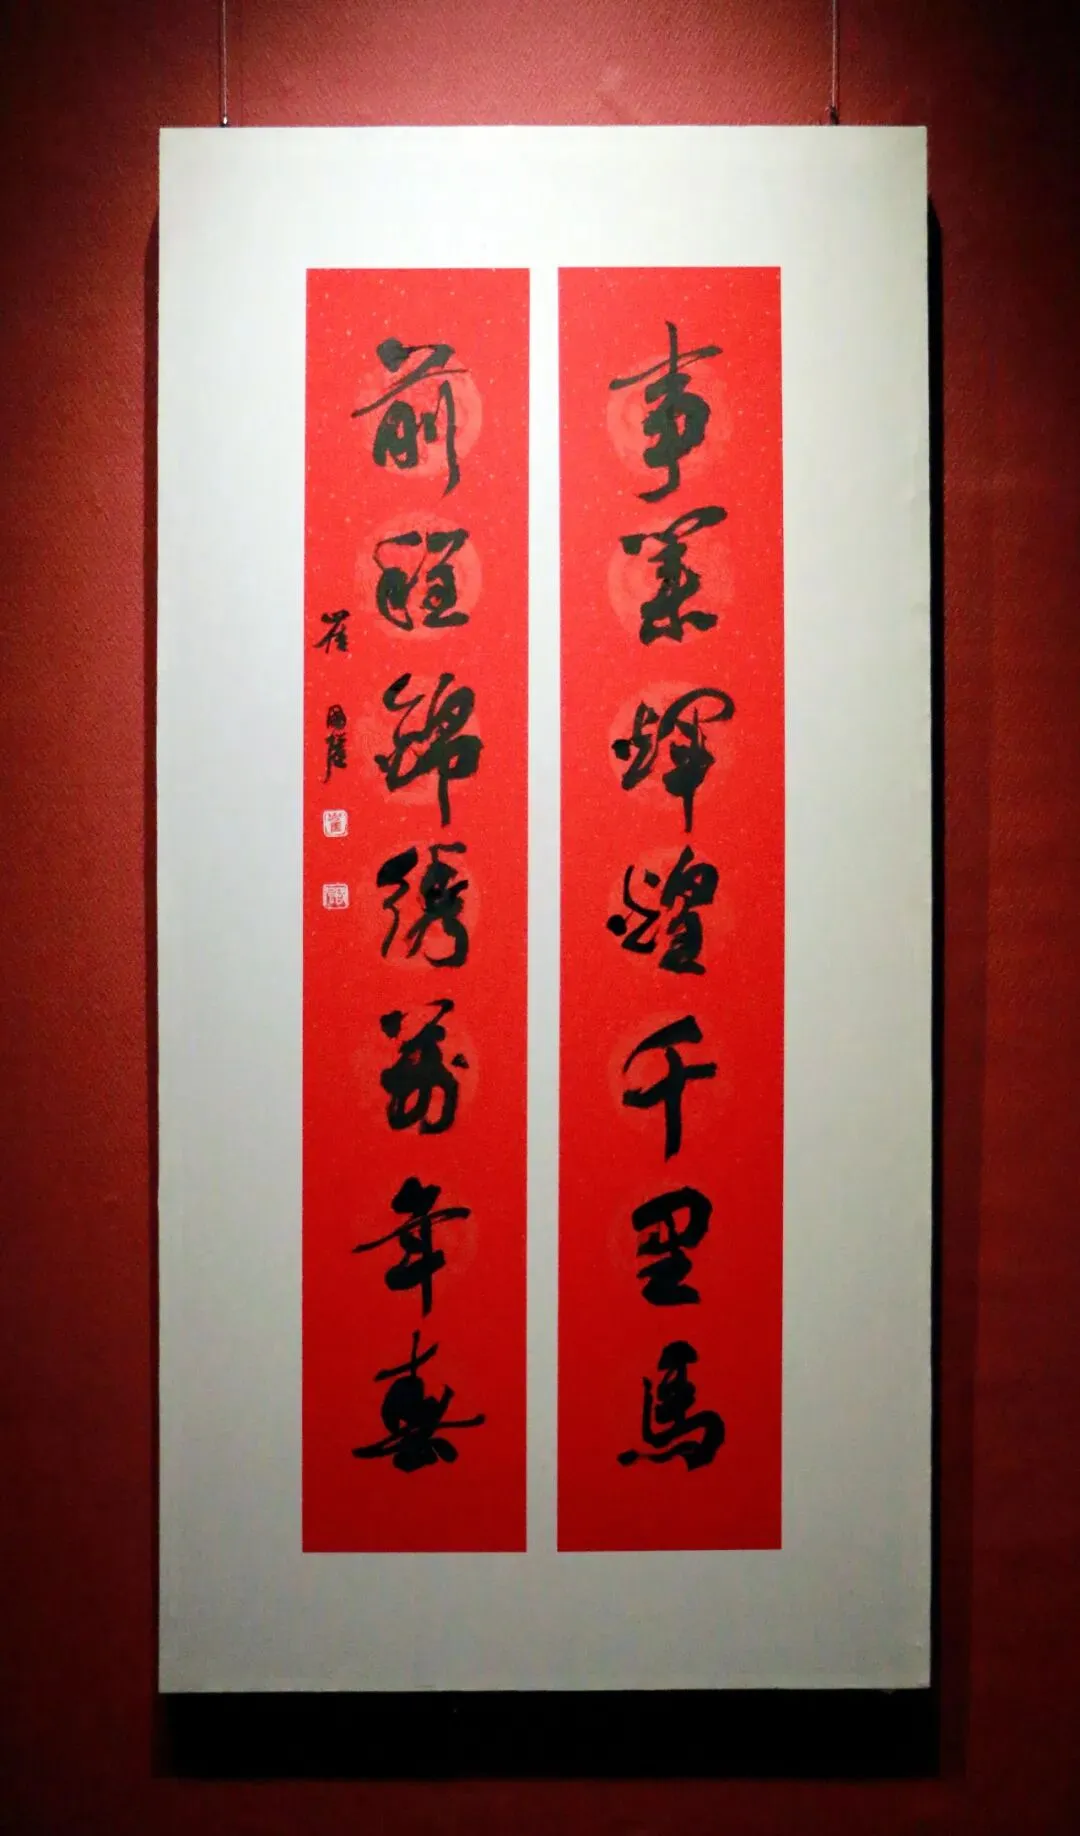 事業輝煌千里馬
前程錦繡萬年春
崔國強
崔